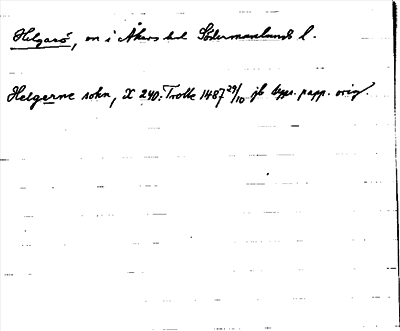 Helgarö, en i Åkers hd Södermanlands l.
Helgerne sokn, X 240: Trolle 1487 29/10 jb bygs. papp. orig.